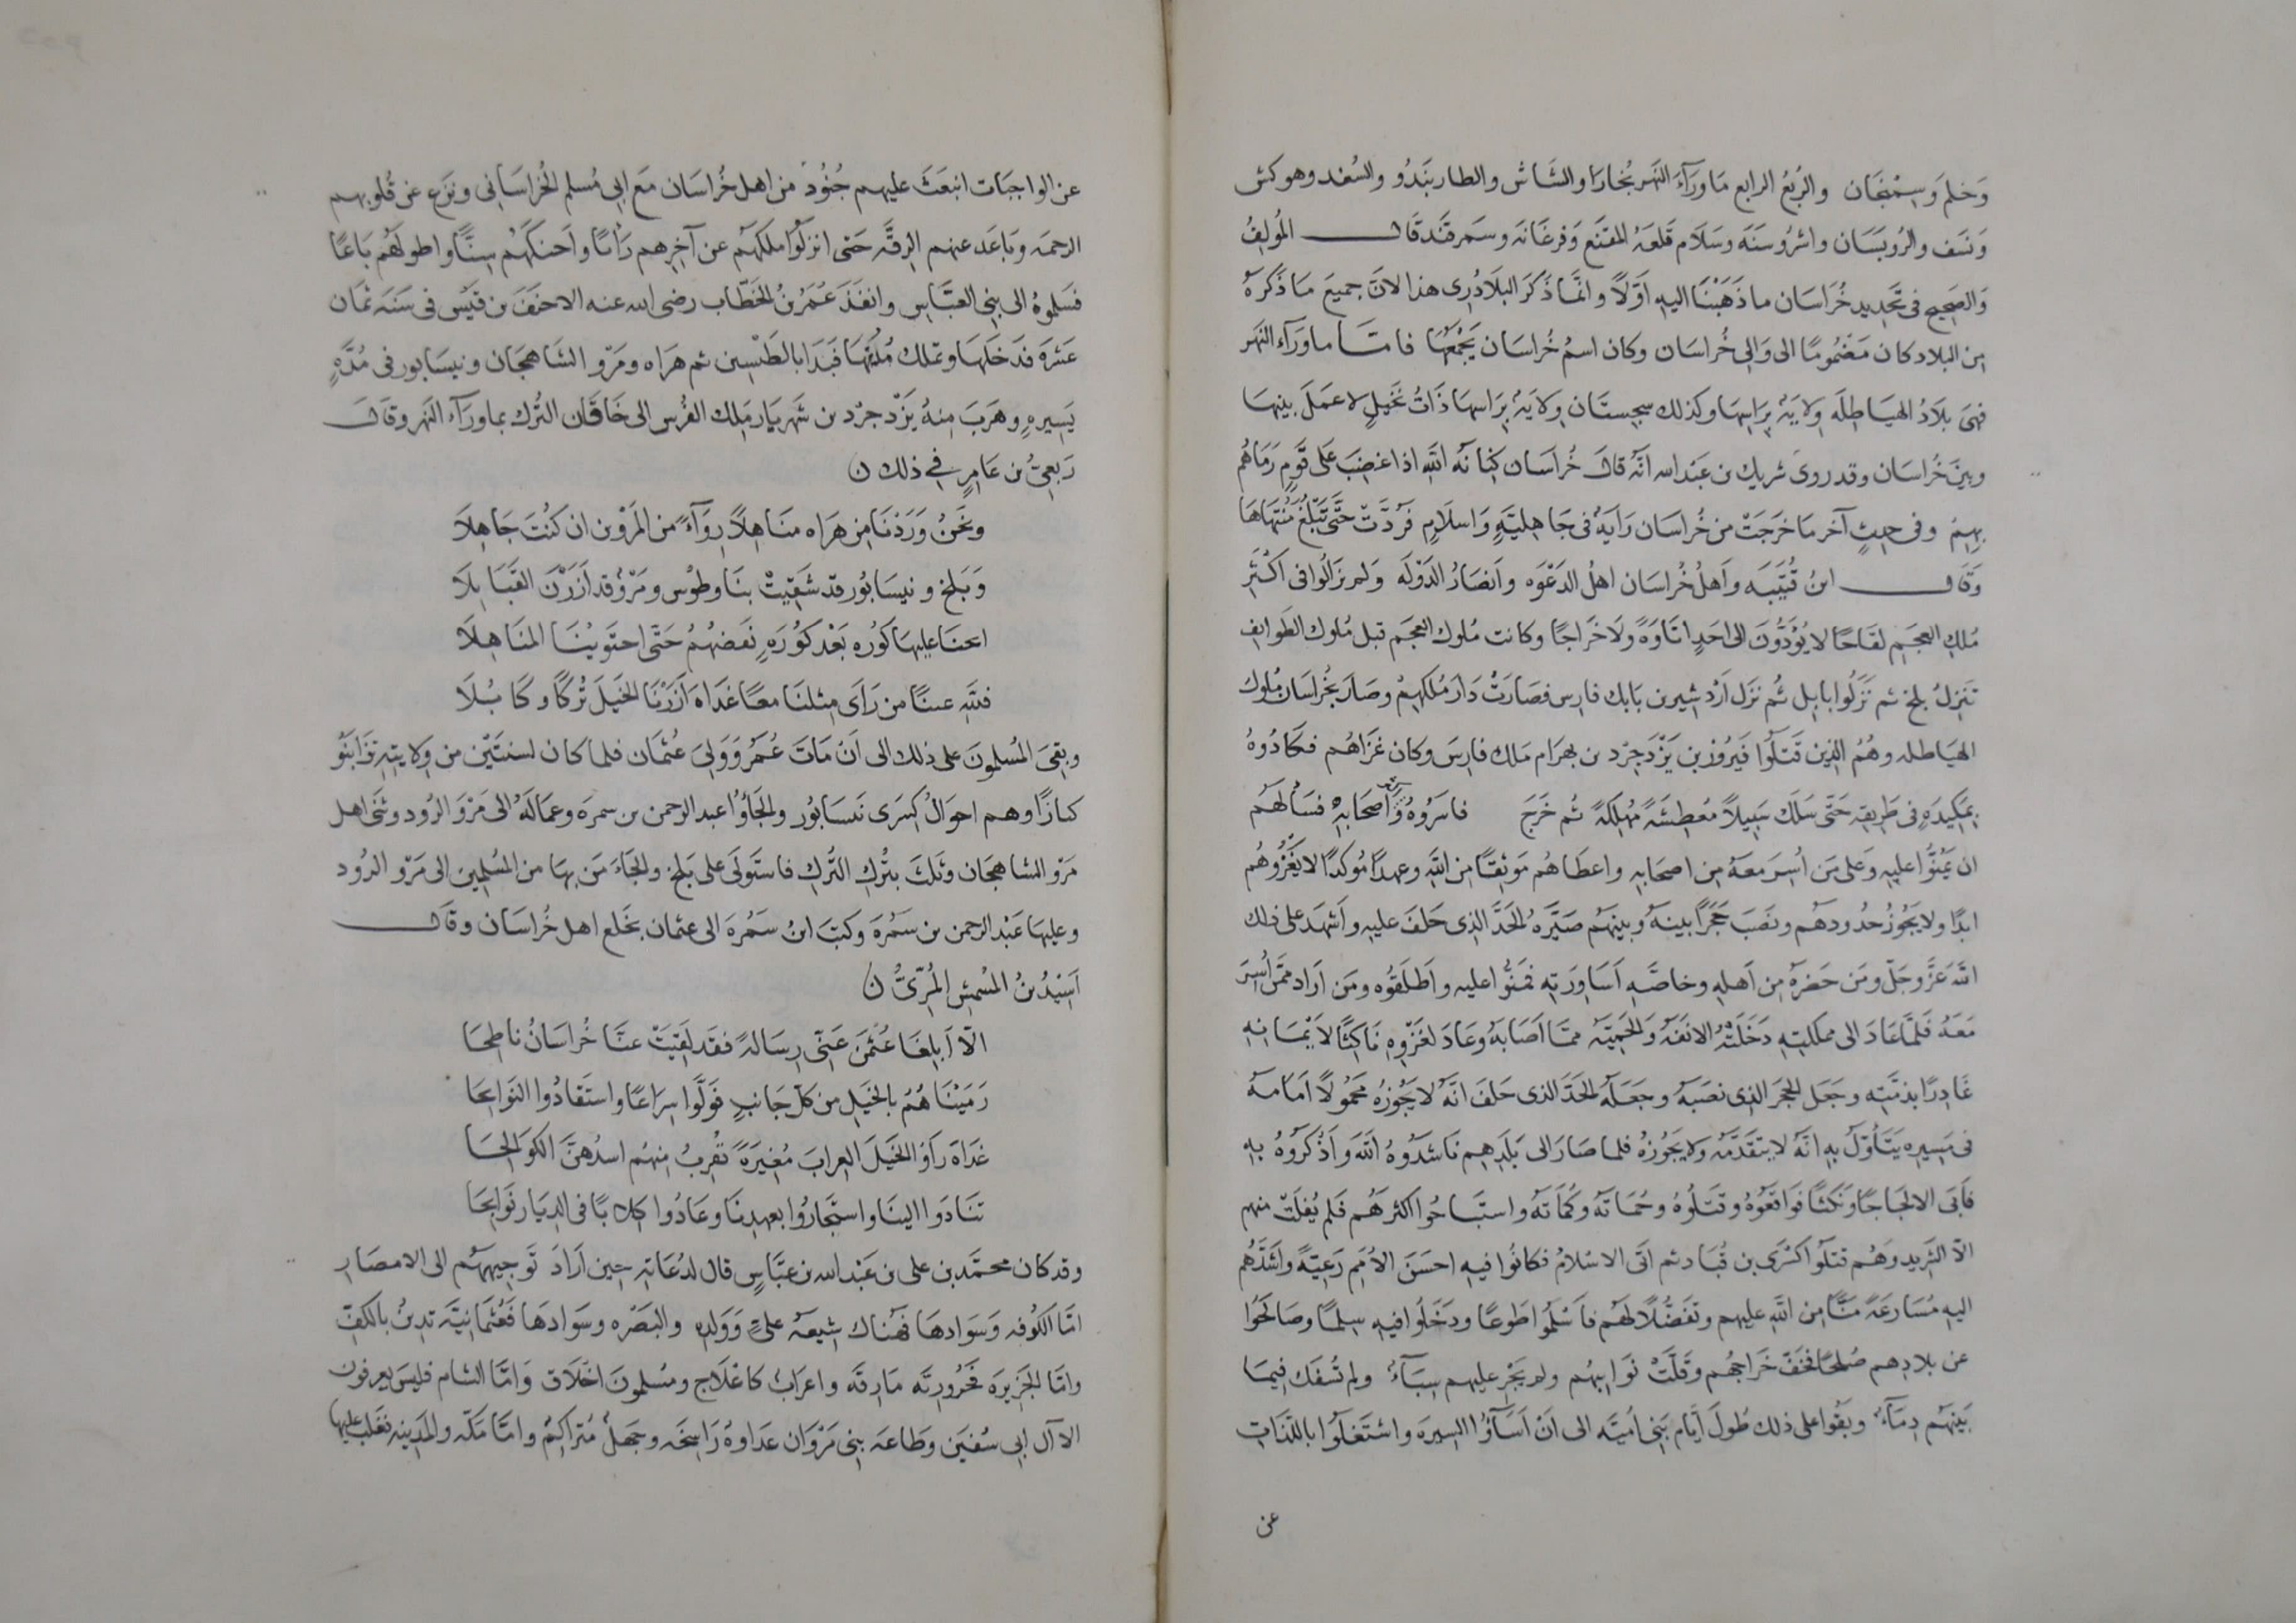 وَخلم وَسِمْنَجَان والرُبعُ الرابع مَا وَرَآءَ النَهر بُخارَا والشَاش والطاربَندُو والسُغد وهو كش
وَنسَف والرُوبَسَان واشرُوسَنَه وسَلَام قَلعَهُ المقنَع وَفرغَانَه وسَمرقَند قَالـــــ المُولِفُ
وَالصَحِيح فى تَحديد خُرَاسَان ما ذَهَبْنَا اليهِ اوّلًا وانَّمَا ذَكَرَ البَلَاذُرِى هذا لانَّ جميعَ مَا ذَكَرهُ
مِن البلاد كان مَضمُومًا الى وَالِى خُراسَان وكان اسمُ خُراسَان يَجْمعُهَا فامّـــا ماوَرَآءَ النَهَر
فهىَ بلَادُ الهيَاطِلَه وِلايَةٌ بِرَاسِهَا وكذلك سِجِستَان وِلَايَهٌ بِرَاسهَا ذَاتُ نَخيلٍ لا عَمَلَ بينهَا
وبينَ خُرَاسَان وقد روىَ شريك بن عَبْد الله انّهُ قالَ خُراسَان كِنانَه اللّهِ اذا غضِبَ عَلى قَومٍ رَمَاهُم
بهِمْ وفى حديثٍ آخر مَا خرَجَتْ من خُراسَان رَايَةٌ فى جَاهِليّهٍ وَاسلَامٍ فَرُدَّتْ حَتَّى تَبْلُغَ مُنتهَاهَا
وَقَالـــــ ابنُ قُتَيبَه وَاَهلُ خُراسَان اهلُ الدَعْوَه واَنصَارُ الدَوْلَه وَلم يَزَالُوا فى اَكْثَرِ
مُلكِ العجَمِ لقَاحًا لا يُؤَدُّونَ الى احَدٍ اتَاوَةً ولَا خَرَاجًا وكانت مُلوك العجَم قبل مُلوك الطَوايِف
تَنزِلُ بلخ ثم نَزَلُوا بابِل ثُم نزَل اَرْدشِير بن بَابك فارِس فصَارَتْ دَارَ مُلكِهِمْ وصَارَ بخُراسَان مُلوك
الهيَاطله وهُمُ الذِين قَتلُوا فَيرُوز بن يَزْدَجِرْد بن بهرَام مَلك فارِسَ وكان غزَاهُم فكَادُوهُ
بِمَكِيدَهٍ فى طَرِيقِهِ حَتّى سَلَك سَبِيلاً مُعطِشَةً مُهلِكَةً ثُم خَرَجَ فاسَرُوهُ وَاَصحَابَهُ فسَأَلهُم
ان يَمُنُّوا عليهِ وَعلى مَن اُسِرَ معَهُ مِن اصحَابهِ واعطَاهُم مَوثِقًا مِن اللّهِ وعهدًا مُوكدًا لا يَغزُوهُم
ابدًا ولا يَجُوزُ حُدُودهُم ونصَبَ حَجَرًا بينَهُ وبينهُم صَيَّرهُ الحَدَّ الذِى حَلَفَ عليهِ واَشهَد على ذلك
اللّهَ عَزَّ وجَلّ ومَن حَضرَهُ مِن اَهلهِ وخاصَّهِ اَسَاوِرَتِهِ فمَنُّوا عليه واَطلَقُوُه ومَن اَرَاد ممّن اُسِرَ
مَعَهُ فَلمَّا عَادَ الى مملكتِهِ دَخَلَتْهُ الانفَهُ وَالحَمِيَّه ممّا اَصَابهُ وعَادَ لغَزْوِهِم نَاكِثًا لاَيْمَانِهِ
غَادِرًا بذمّتِهِ وجَعَل الحجَر الذِى نصَبَهُ وجعَلهُ الحَدَ الذى حَلفَ انّهُ لا يَجُوزُهُ محمُولاً اَمَامهُ
فى مَسِيرِهِ يَتَأَوّلُ بهِ انّهُ لا يتقدّمُه ولا يَجُوزُهُ فلما صَارَ الى بَلَدِهِم نَاشَدُوهُ اللّهَ وَاَذكَرُوهُ بهِ
فَاَبَى الا لجَاجًا وَنكثًا فوَاقعُوهُ وقتَلُوهُ وحُمَاتَه وكُمَاتَه واستبَاحُوا اكثرَهُم فَلم يُفلِتْ منهم
الاّ الشَرِيد وَهُم قتلُوا اكسْرَى بن قُبَاد ثم اتَى الاسْلامُ فكانُوا فيهِ احسَنَ الاُمَمِ رَعِيّةً وَاشَدَّهُم
اليهِ مُسَارعَةً مَنًّا مِن اللّهِ عليهم وتفَضُّلاً لهُم فاَسْلمُوا طَوعًا ودَخَلُوا فيهِ سِلمًا وصَالحُوا
عن بلادِهم صُلحًا فخَفَّ خَراجُهُم وَقَلّتْ نوَايِبُهُم ولم يَجْرِ عليهم سِبَآءٌ ولم تُسفَك فِيمَا
بَينَهُم دِمَآءٌ وبَقُوا على ذلك طُولَ اَيّام بَنِى اُمَيّه الى اَنْ اَسَآؤُا السِيرَه واشتَغَلُوا باللّذَاتِ
عن
عن الواجبَات انبعَثَ عليهم جُنُودٌ من اهل خُراسَان مَعَ ابى مُسلم الخُراسَانِى ونزَع عن قُلوبهم
الرحمَه وبَاعَد عنهم الرِقَّه حَتى ازَلُوا ملكَهُم عن آخِرِهم رَأيًا واَحنكَهُم سِنًّا واطولَهُم بَاعًا
فسَلموُهُ الى بنِى العبّاس وانفَذَ عُمَرُ بنُ الخَطّاب رضى الله عنه الاحنَفَ بن قَيْس فى سَنَه ثمَان
عَشرَه فدَخلَهَا وتملك مُدُنهَا فَبَدَا بالطبْسِين ثم هرَاه ومَرْو الشاهِجَان ونيسَابور فى مُدّهٍ
يَسِيرهٍ وهَرَبَ مِنهُ يَزْدجرْد بن شَهريَار مَلِك الفُرس الى خَاقان التُرك بماورَآء النَهر وقالَـــــ
رَبعِىُّ بن عَامِرٍ فِى ذلك ن
ونَحنُ وَرَدْنَا مِن هرَاه مَنَاهِلاً رِوَآءً من المَرْوَين ان كنُتَ جَاهِلَا
وَبَلخ ونيسَابُور قد شَقِيَتْ بنَا وطُوْس ومَرْوٌ قد اَزَرْنَ القَبَايِلَا
انخنَا عليهَا كُوره بَعْد كُورَهٍ نَفضهُمُ حَتّى احتوَينُا المنَاهِلَا
فللّهِ عينًا من رَأَى مِثلنَا معًا غَدَاهَ اَزَرْنَا الخَيلَ تُركًا وكَابُلَا
وبقِىَ المُسلموُنَ على ذلك الى اَنْ مَاتَ عُمَرُ وَوَلِىَ عُثمَان فلما كان لسنتَيْن من وِلايتِهِ تزَا بَنُو
كنازًا وهم احوَالُ كِسرَى نَيسَابُور والجَأوُا عبد الرحمن بن سمرَه وعمَالَهُ الى مَرْوَ الرُود وثنى اهل
مَرْو الشاهِجَان وثَلثَ بترْكِ التُركِ فاستَولَى على بَلخ والجَاءَ مَن بهَا من المُسْلِمِين الى مَرْو الرُود
وعليهَا عَبْد الرحمن بن سَمُرَه وكتبَ ابنُ سَمُرهَ الى عثمَان بخَلع اهل خُراسَان وقَالـــــ
اَسِيْدُ بنُ المتُشمِسِ المُرِّىُّ ن
الاّ اَبلِغَا عُثمَن عَنِّى رِسَالةً فقَد لقِيَتْ عنّا خُراسَانُ ناطِحَا
رَمَيْنَاهُمُ بالخَيل من كلّ جَانبٍ فوَلّوا سِرَاعًا واستَقَادُوا النَوابِحَا
غدَاهَ رَأوُا الخَيلَ العِرابَ مُغِيرَةً تُقرِبُ مِنهُم اسدُهنَّ الكوَالِحَا
تنَادَوا الينَا واستجَارُوا بعهدِنَا وعَادُوا كِلابًا فى الدِيَار نوَابحَا
وقد كان محمّد بن على بن عَبْد الله بن عبَّاسٍ قال لدُعَاتهِ حِين اَرَادَ تَوجِيهَهُم الى الامصَارِ
امّا الكُوفه وَسَوادهَا فهُنَاك شِيعَهُ علىٍّ وَوَلدِهِ والبَصْره وسوَادهَا فعُثمَانِيَّه تدِينُ بالكَفِّ
وامّا الجَزِيرَه فحَرُورِيّه مَارِقَه واعرَابٌ كاعْلَاج ومسُلمونَ اخْلَاق وَامّا الشام فليسَ يعرفون
الا آل ابى سُفيَن وطَاعهَ بنِى مَرْوَان عدَاوةٌ رَاسِخَه وجَهلٌ مُتراكِمٌ وامّا مَكّه والمَدِينه فغلبَ عليهما